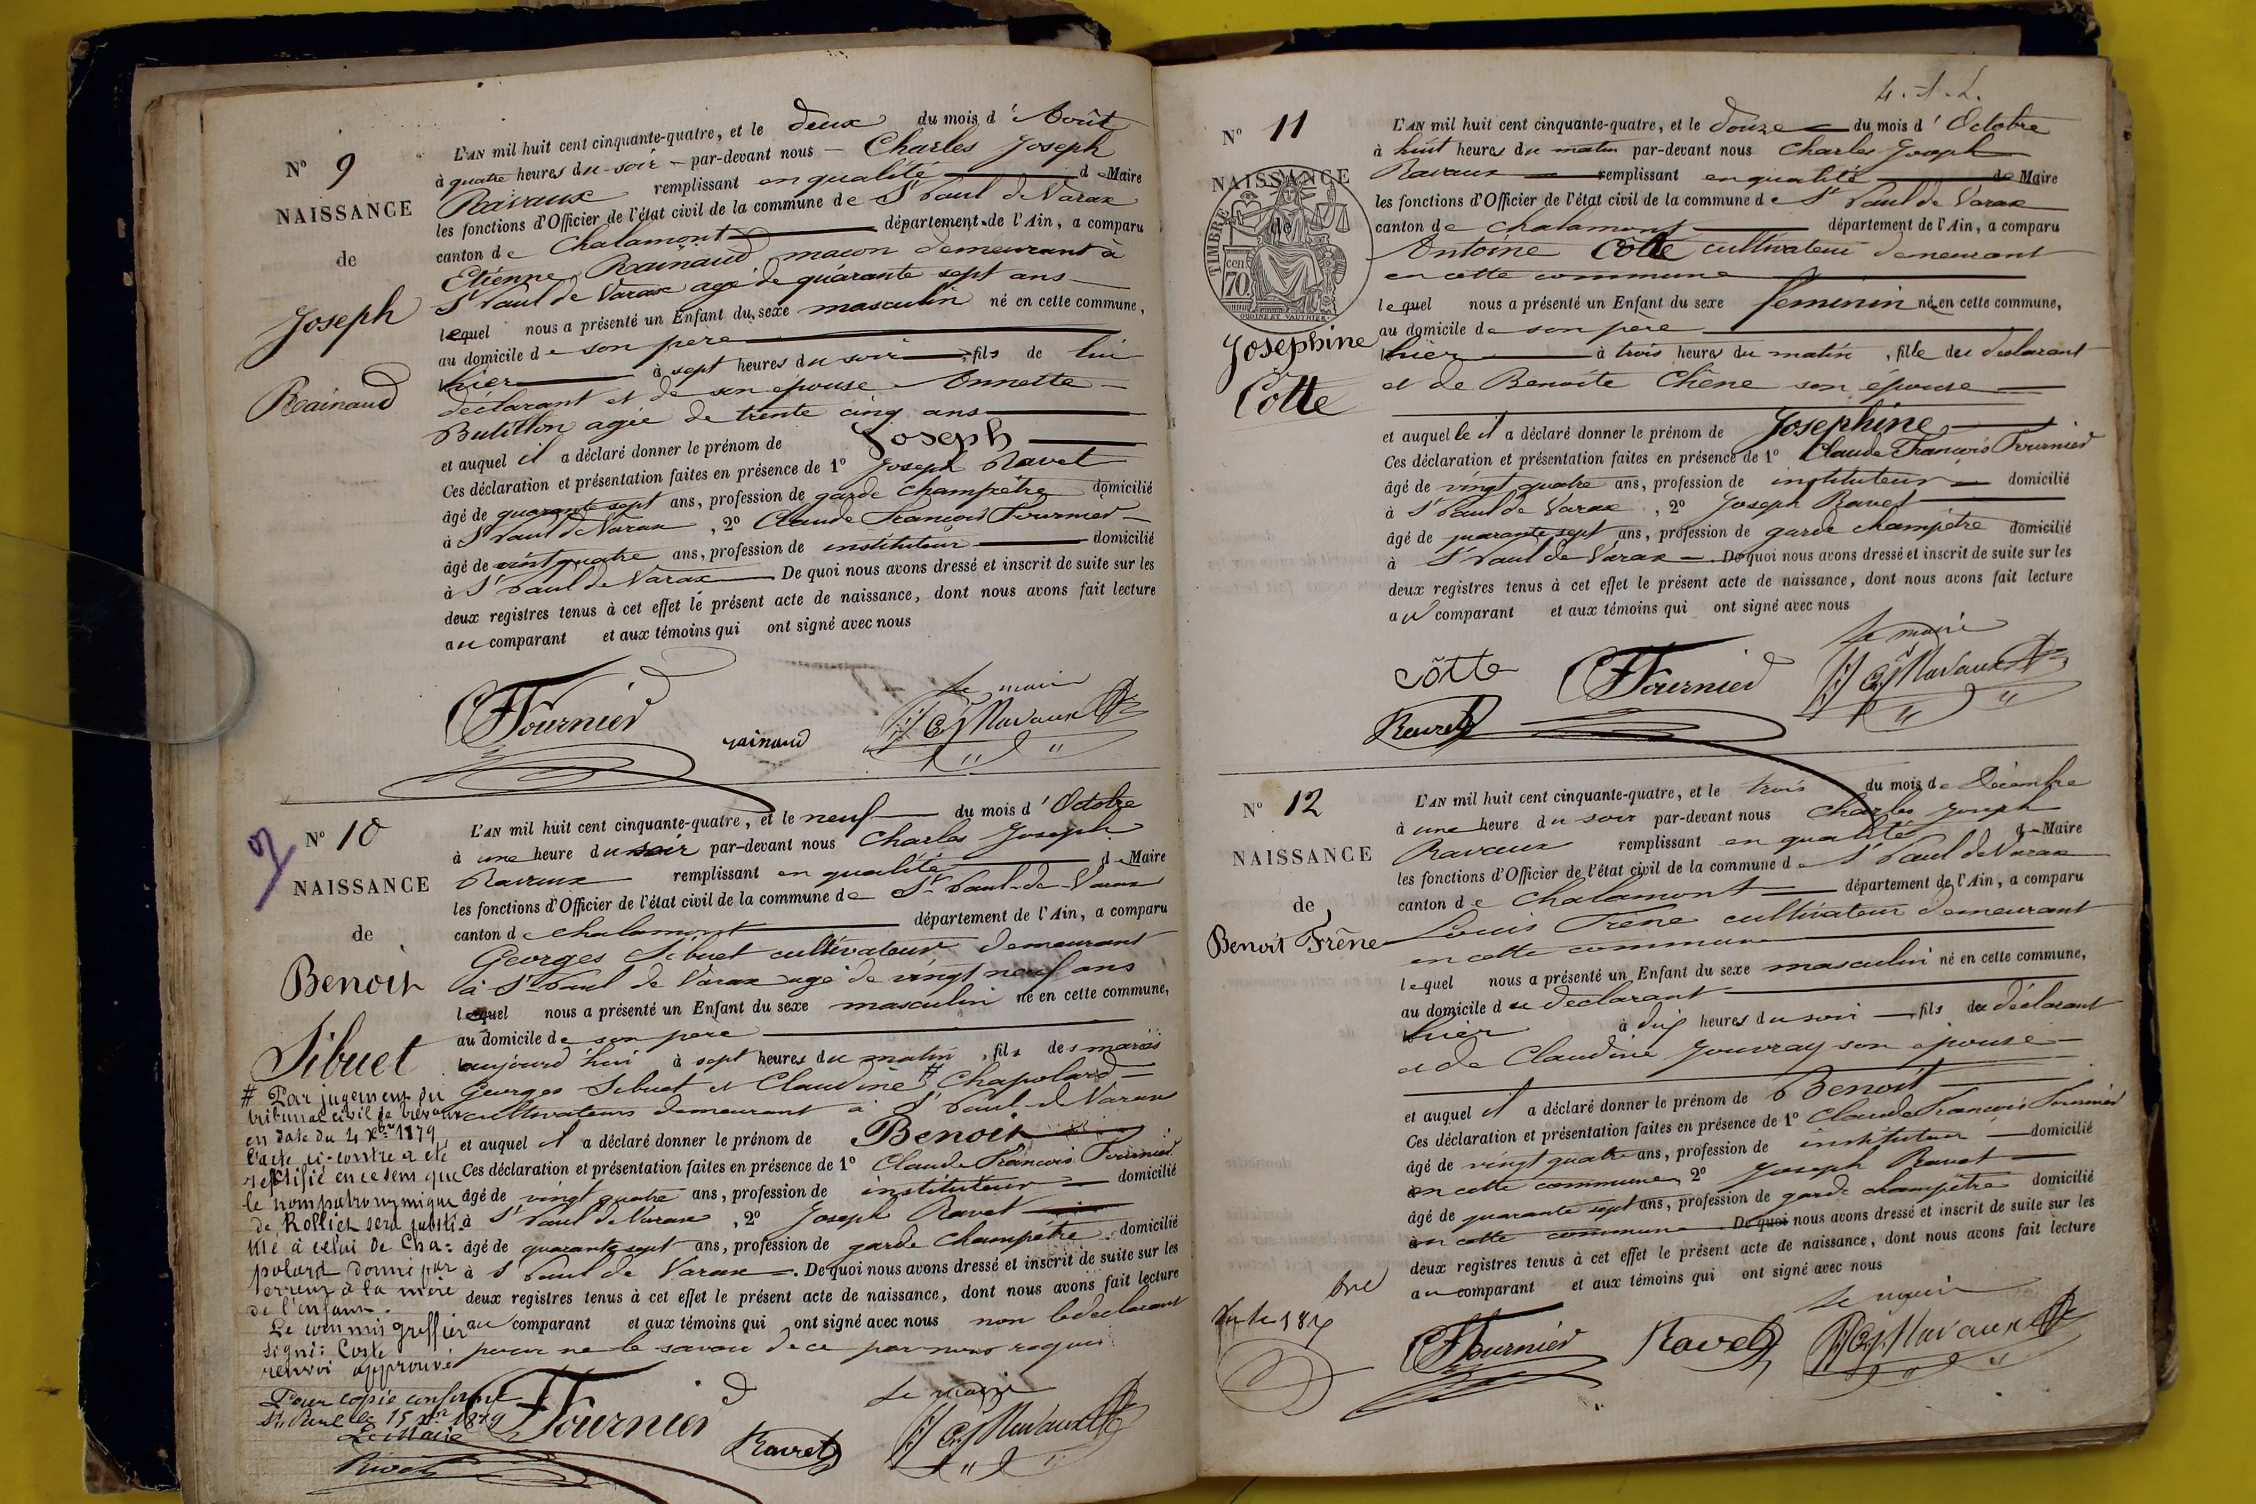 N° 9
NAISSANCE
de
Joseph
Rainaud
L'AN mil huit cent cinquante-quatre, et le deux du mois d'Août
à quatre heures du soir par-devant nous Charles Joseph
Ravaux remplissant en qualité de Maire
les fonctions d'Officier de l'état civil de la commune de St Paul de Varax
canton de Chalamont département de l'Ain, a comparu
Etienne Rainaud maçon demeurant à
St Paul de Varax agé de quarante sept ans
lequel nous a présenté un Enfant du sexe masculin né en cette commune,
au domicile de son père
hier à sept heures du soir, fils de lui
déclarant et de son épouse Annette
Butillon agée de trente cinq ans
et auquel il a déclaré donner le prénom de Joseph
Ces déclaration et présentation faites en présence de 1° Joseph Ravet
âgé de quarante sept ans, profession de garde champêtre domicilié
à St Paul de Varax, 2° Claude François Fournier
âgé de vint quatre ans, profession de instituteur domicilié
à St Paul de Varax De quoi nous avons dressé et inscrit de suite sur les
deux registres tenus à cet effet le présent acte de naissance, dont nous avons fait lecture
au comparant et aux témoins qui ont signé avec nous
Le maire
CFournier rainaud Ravaux
N° 10
NAISSANCE
de
Benoit
Sibuet
L'AN mil huit cent cinquante-quatre, et le neuf du mois d'Octobre
à une heure du soir par-devant nous Charles Joseph
Ravaux remplissant en qualité de Maire
les fonctions d'Officier de l'état civil de la commune de St Paul-de-Varax
canton de Chalamont département de l'Ain, a comparu
Georges Sibuet cultivateur demeurant
à St Paul de Varax agé de vingt neuf ans
lequel nous a présenté un Enfant du sexe masculin né en cette commune,
au domicile de son père
aujourd'hui à sept heures du matin, fils des mariés
Georges Sibuet et Claudine # Chapolard
cultivateurs demeurant à St Paul de Varax
et auquel il a déclaré donner le prénom de Benoit
Ces déclaration et présentation faites en présence de 1° Claude François Fournier
âgé de vingt quatre ans, profession de instituteur domicilié
à St Paul de Varax, 2° Joseph Ravet
âgé de quarante sept ans, profession de garde champêtre domicilié
à St Paul de Varax. De quoi nous avons dressé et inscrit de suite sur les
deux registres tenus à cet effet le présent acte de naissance, dont nous avons fait lecture
au comparant et aux témoins qui ont signé avec nous non le déclarant
pour ne le savoir de ce par nous requis
Le maire
CFournier Ravet Ravaux
# Par jugement du
tribunal civil de Trévoux
en date du 4 Xbre 1879
l'acte ci-contre a été
rectifié en ce sens que
le nom patronymique
de Rollet sera substi
tué à celui de Cha=
polard donné par
erreur à la mère
de l'enfant.
Le commis greffier
signé: Coste
renvoi approuvé
Pour copie conforme
St Paul le 15 Xbre 1879
Le Maire
Rivat
4.
N° 11
NAISSANCE
de
TIMBRE
cen
70
OUDINÉ ET VAUTHIER
Josephine
Cotte
L'AN mil huit cent cinquante-quatre, et le douze du mois d'Octobre
à huit heures du matin par-devant nous Charles Joseph
Ravaux remplissant en qualité de Maire
les fonctions d'Officier de l'état civil de la commune de St Paul de Varax
canton de Chalamont département de l'Ain, a comparu
Antoine Côtte cultivateur demeurant
en cette commune
lequel nous a présenté un Enfant du sexe feminin né en cette commune,
au domicile de son père
hier à trois heures du matin, fille du déclarant
et de Benoite Chêne son épouse
et auquel le il a déclaré donner le prénom de Josephine
Ces déclaration et présentation faites en présence de 1° Claude François Fournier
âgé de vingt quatre ans, profession de instituteur domicilié
à St Paul de Varax, 2° Joseph Ravet
âgé de quarante sept ans, profession de garde champêtre domicilié
à St Paul de Varax De quoi nous avons dressé et inscrit de suite sur les
deux registres tenus à cet effet le présent acte de naissance, dont nous avons fait lecture
au comparant et aux témoins qui ont signé avec nous
Le maire
côtte CFournier Ravaux
Ravet
N° 12
NAISSANCE
de
Benoit Frêne
L'AN mil huit cent cinquante-quatre, et le trois du mois de Décembre
à une heure du soir par-devant nous Charles Joseph
Ravaux remplissant en qualité de Maire
les fonctions d'Officier de l'état civil de la commune de St Paul de Varax
canton de Chalamont département de l'Ain, a comparu
Louis Frêne cultivateur demeurant
en cette commune
lequel nous a présenté un Enfant du sexe masculin né en cette commune,
au domicile du déclarant
hier à dix heures du soir, fils du déclarant
et de Claudine Jouvray son épouse
et auquel il a déclaré donner le prénom de Benoit
Ces déclaration et présentation faites en présence de 1° Claude François Fournier
âgé de vingt quatre ans, profession de instituteur domicilié
en cette commune, 2° Joseph Ravet
âgé de quarante sept ans, profession de garde champêtre domicilié
en cette commune. De quoi nous avons dressé et inscrit de suite sur les
deux registres tenus à cet effet le présent acte de naissance, dont nous avons fait lecture
au comparant et aux témoins qui ont signé avec nous
Le maire
CFournier Ravet Ravaux